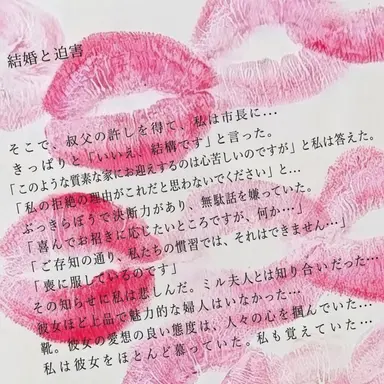 結婚と迫害
そこで、叔父の許しを得て、私は市長に…
きっぱりと「いいえ、結構です」と言った。
「このような質素な家にお迎えするのは心苦しいのですが」と私は答えた。
「私の拒絶の理由がこれだと思わないでください」と…
ぶっきらぼうで決断力があり、無駄話を嫌っていた。
「喜んでお招きに応じたいところですが、何か…」
「ご存知の通り、私たちの慣習では、それはできません…」
「喪に服しているのです」
その知らせに私は悲しんだ。ミル夫人とは知り合いだった…
彼女ほど上品で魅力的な婦人はいなかった…
靴。彼女の愛想の良い態度は、人々の心を掴んでいた…
私は彼女をほとんど慕っていた。私も覚えていた…